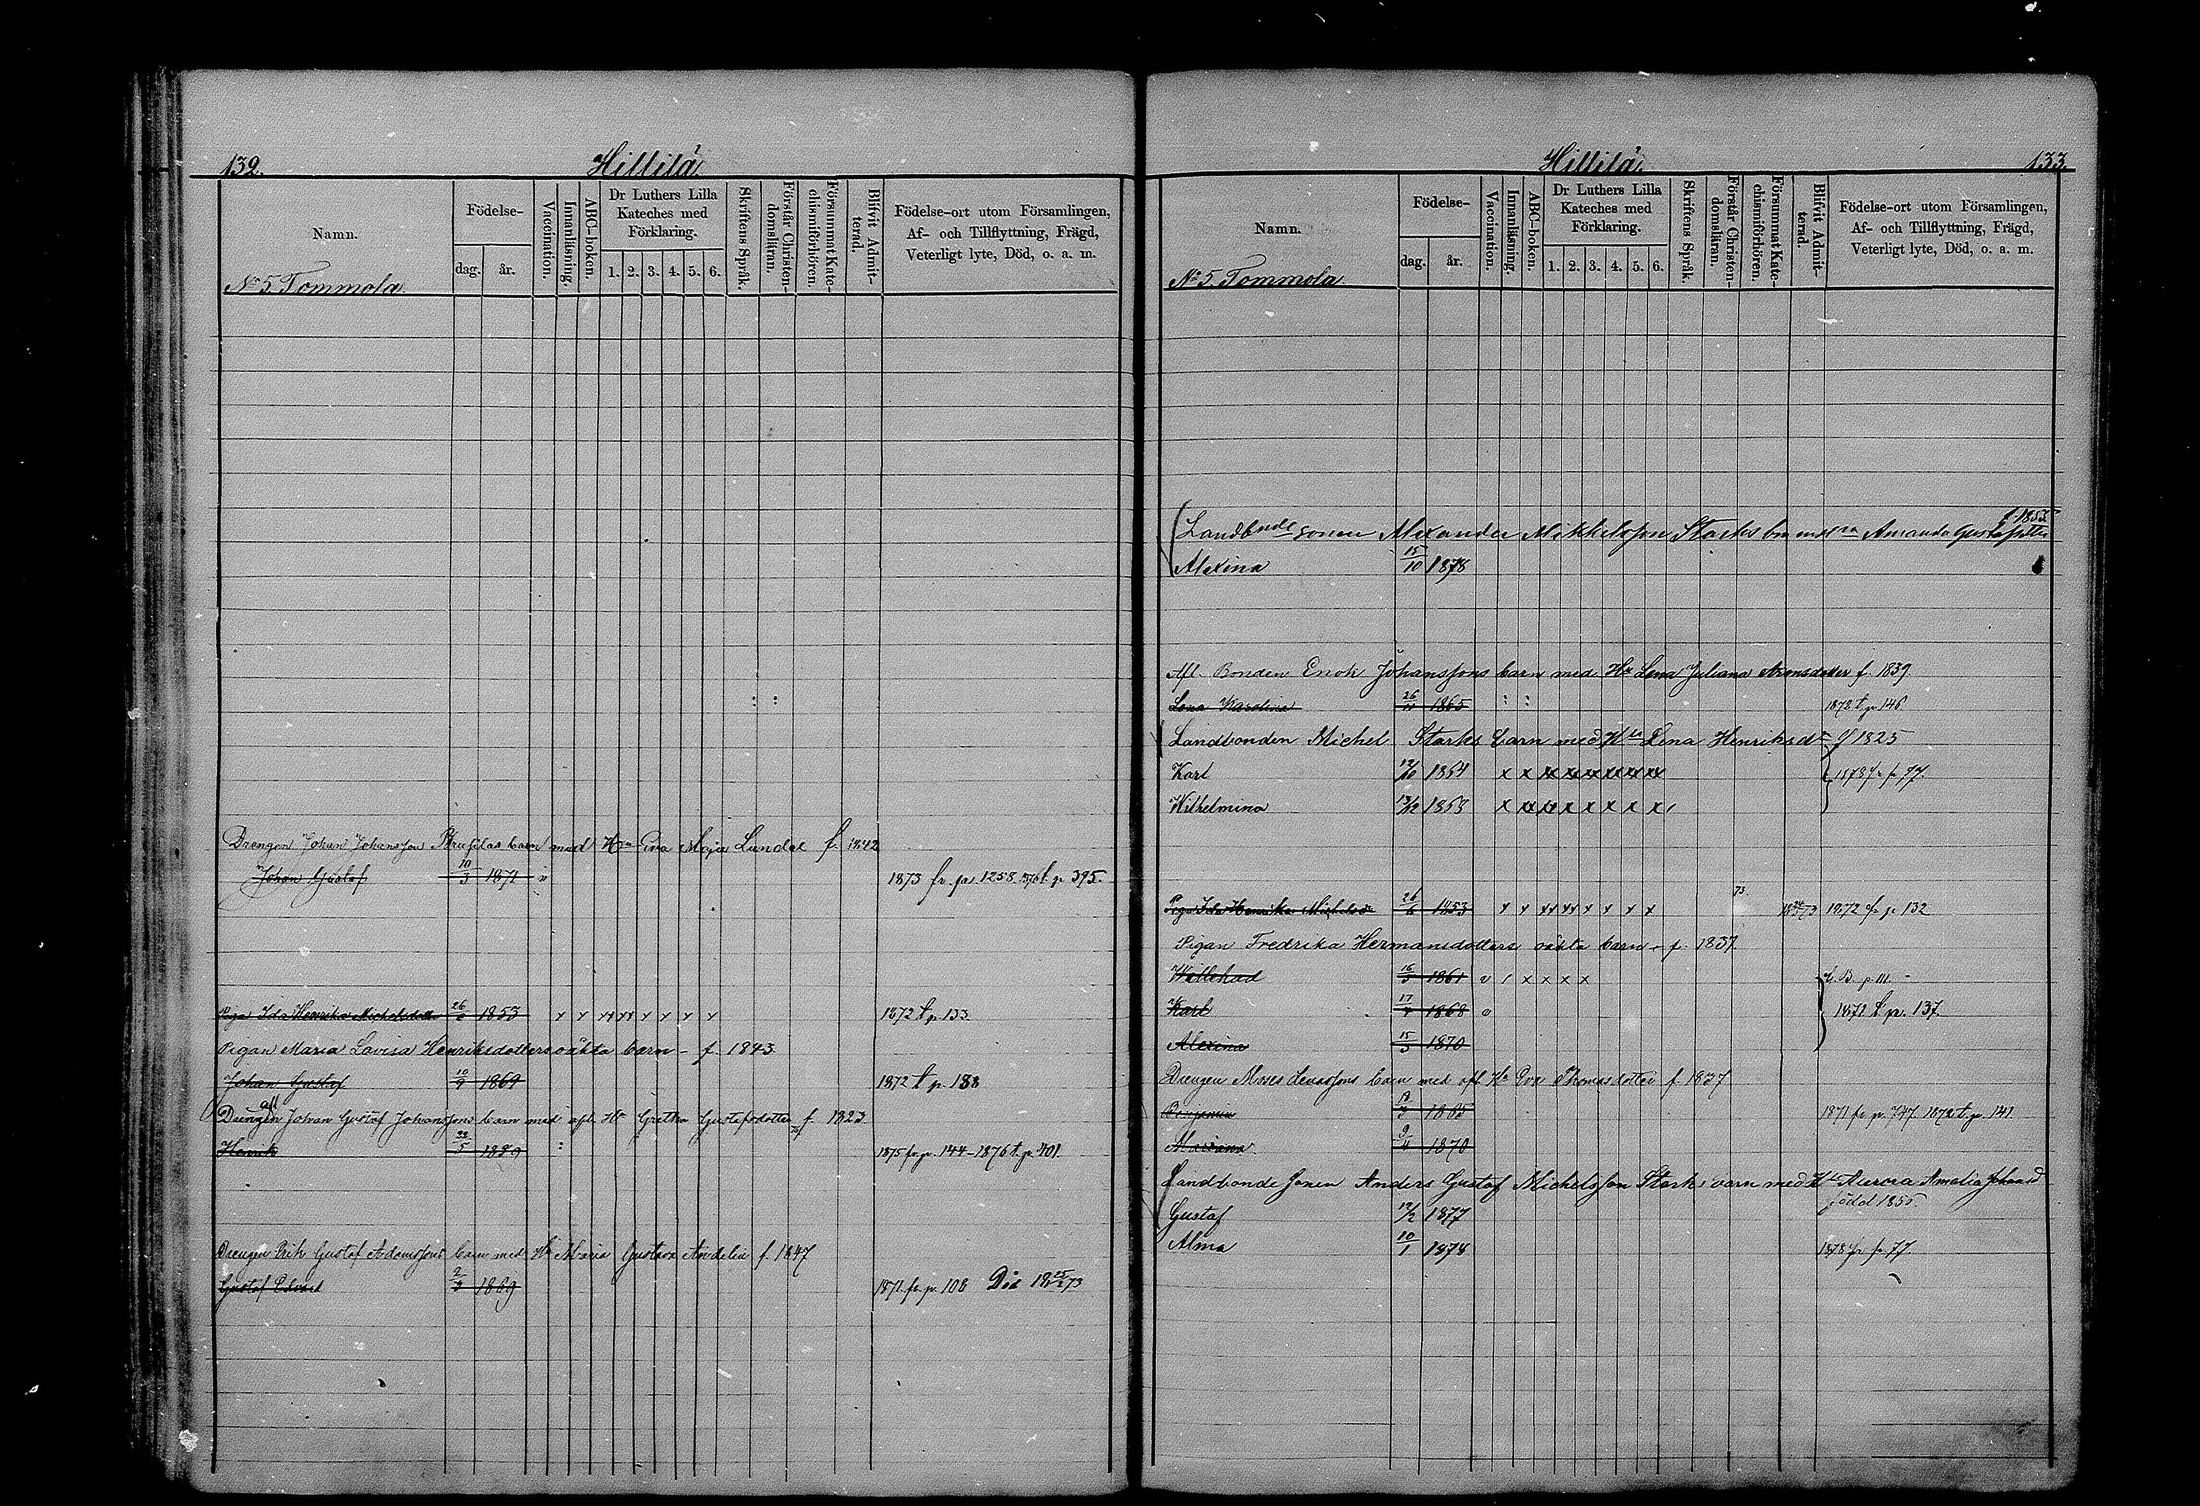 132.
Hillilä
Namn.
Födelse-
dag.
år.
Vaccination.
Innanläsning.
ABC-boken.
Dr Luthers Lilla
Kateches med
Förklaring.
1. 2. 3. 4. 5. 6.
Skriftens Språk.
Förstår Christen-
domsläran.
Försummat Kate-
chismiförhören.
Blifvit Admit-
terad.
Födelse-ort utom Församlingen,
Af- och Tillflyttning, Frägd,
Veterligt lyte, Död, o. a. m.
No 5. Tommola.
Drengen Johan Johansson barn med Hu Eva Maja Lundal f. 1842
Johan Gustaf 10/3 1871 1873 fr. pa. 1258 1876 t. p. 395.
Pigan Ida Henrika Michelsdotter 26/6 1853 x x xx xx x x x x 1872 t. p. 133
Pigan Maria Lovisa Henriksdotters oäkta barn - f. 1843
Johan Gustaf 10/9 1869 1872 t. p. 188
Drengen afl Johan Gustaf Johanssons barn med afl. Hu Gretha Gustafsdotter f. 1823
Henrik 1875 fr. p. 144 - 1876 t. p. 401.
Drengen Erik Gustaf Adamssons barn med Hu Maria Gustava Andelin f. 1847
Gustaf Edvard 1869 1871. fr. p. 108 Död 18 25/2 73
Hillilä.
133.
Namn.
Födelse-
dag.
år.
Vaccination.
Innanläsning.
ABC-boken.
Dr Luthers Lilla
Kateches med
Förklaring.
1. 2. 3. 4. 5. 6.
Skriftens Språk.
Förstår Christen-
domsläran.
Försummat Kate-
chismiförhören.
Blifvit Admit-
terad.
Födelse-ort utom Församlingen,
Af- och Tillflyttning, Frägd,
Veterligt lyte, Död, o. a. m.
No 5. Tommola.
f. 1853
Landbonde sonen Alexander Mikkelsson Starks bn med Amanda
Alexina 15/10 1878
Afl. Bonden Enok Johanssons barn med Hu Lena Juliana Aronsdotter f. 1839
Lena Karolina 1865 1872 t. p. 146
Landbonden Michel Starks barn med Hu Lena Henriksdr f 1825
Karl 12/10 1864 x x 1878 fr p. 77.
Wilhelmina 1858 x
73
Piga Ida Henrika Michelsd 26/6 1853 x x xx xx x x x x 1872 fr p. 132
Pigan Fredrika Hermansdotters oäkta barn - f. 1837
Willehad 1861 v x x x x K. B. p. 111 -
Karl 1868 1872 t. p. 137
Alexina 15/3 1870
Drengen Moses barn med afl Hu Eva Thomasdotter f 1837
Benjamin 1865 1871 fr. p. 747. 1872 t. p. 141
Mariana 1870
Landbonde sonen Anders Gustaf Michelsson Starks barn med Hu Aurora Amalia Johansd
född 1855
Gustaf 12/2 1877
Alma 10/1 1878 1878 fr p. 77